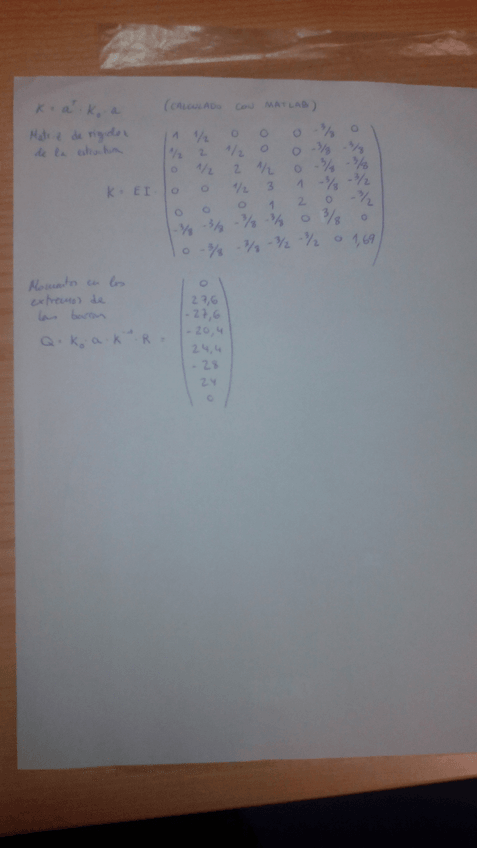 K = aᵀ · K₀ · a (CALCULADO CON MATLAB)
Matriz de rigidez
de la estructura
K = EI ·
1 1/2 0 0 0 -3/8 0
1/2 2 1/2 0 0 -3/8 -3/8
0 1/2 2 1/2 0 -3/8 -3/8
0 0 1/2 3 1 -3/8 -3/2
0 0 0 1 2 0 -3/2
-3/8 -3/8 -3/8 -3/8 0 3/8 0
0 -3/8 -3/8 -3/2 -3/2 0 1,69
Momentos en los
extremos de
las barras
Q = K₀ · a · K⁻¹ · R =
0
27,6
-27,6
-20,4
24,4
-28
24
0